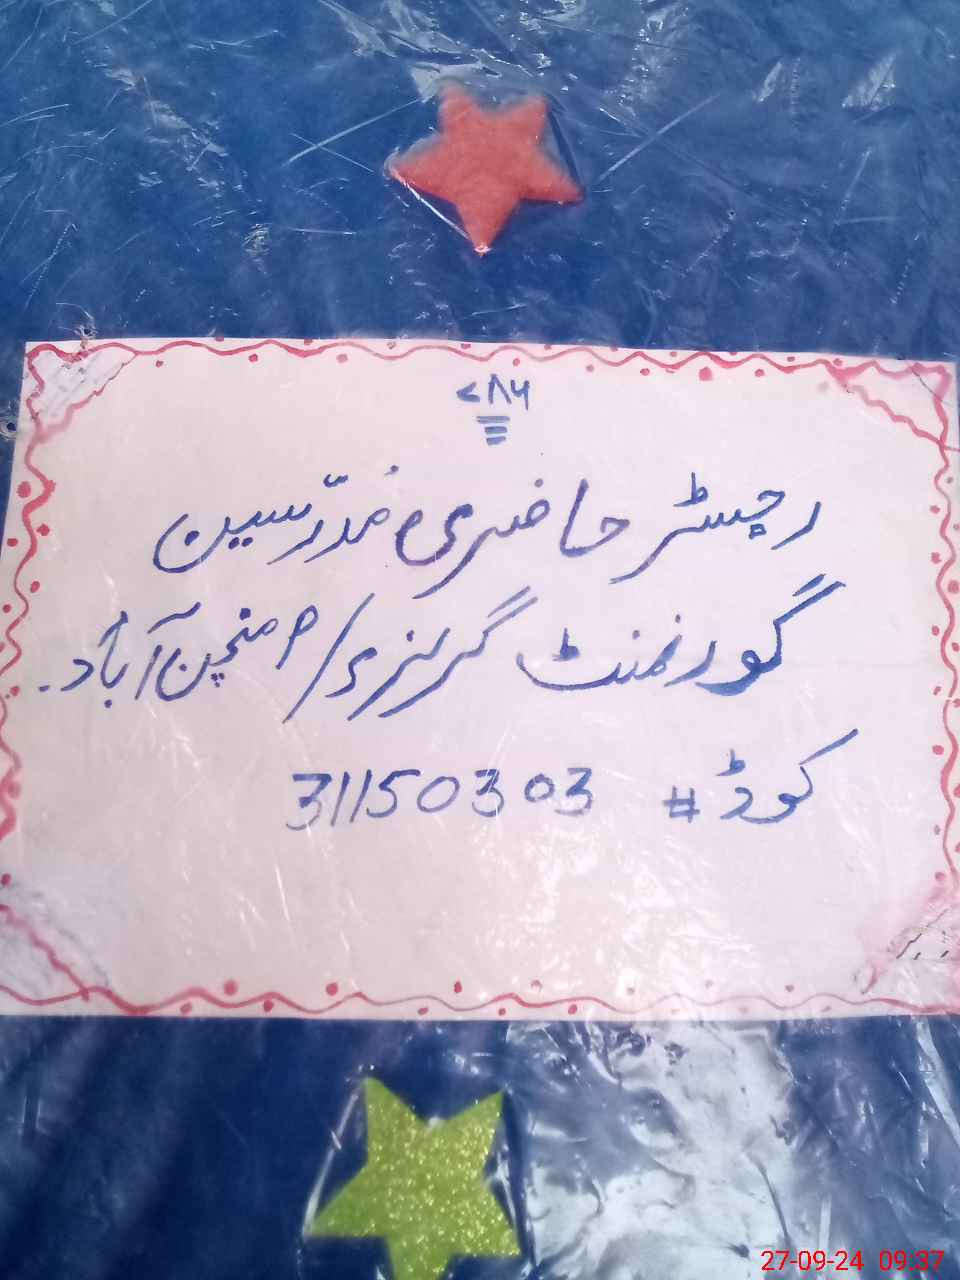 ۷۸۶
رجسٹر حاضری مُدرّسین
گورنمنٹ گرلز ء/م منچن آباد۔
کوڈ # 31150303
27-09-24 09:37